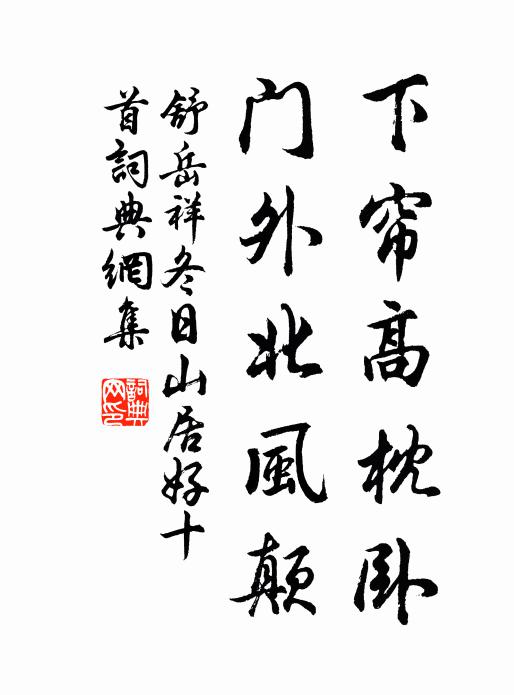 下帘高枕卧
门外北風颠
舒岳祥冬日山居好十
首詞典網集
詞典
网印